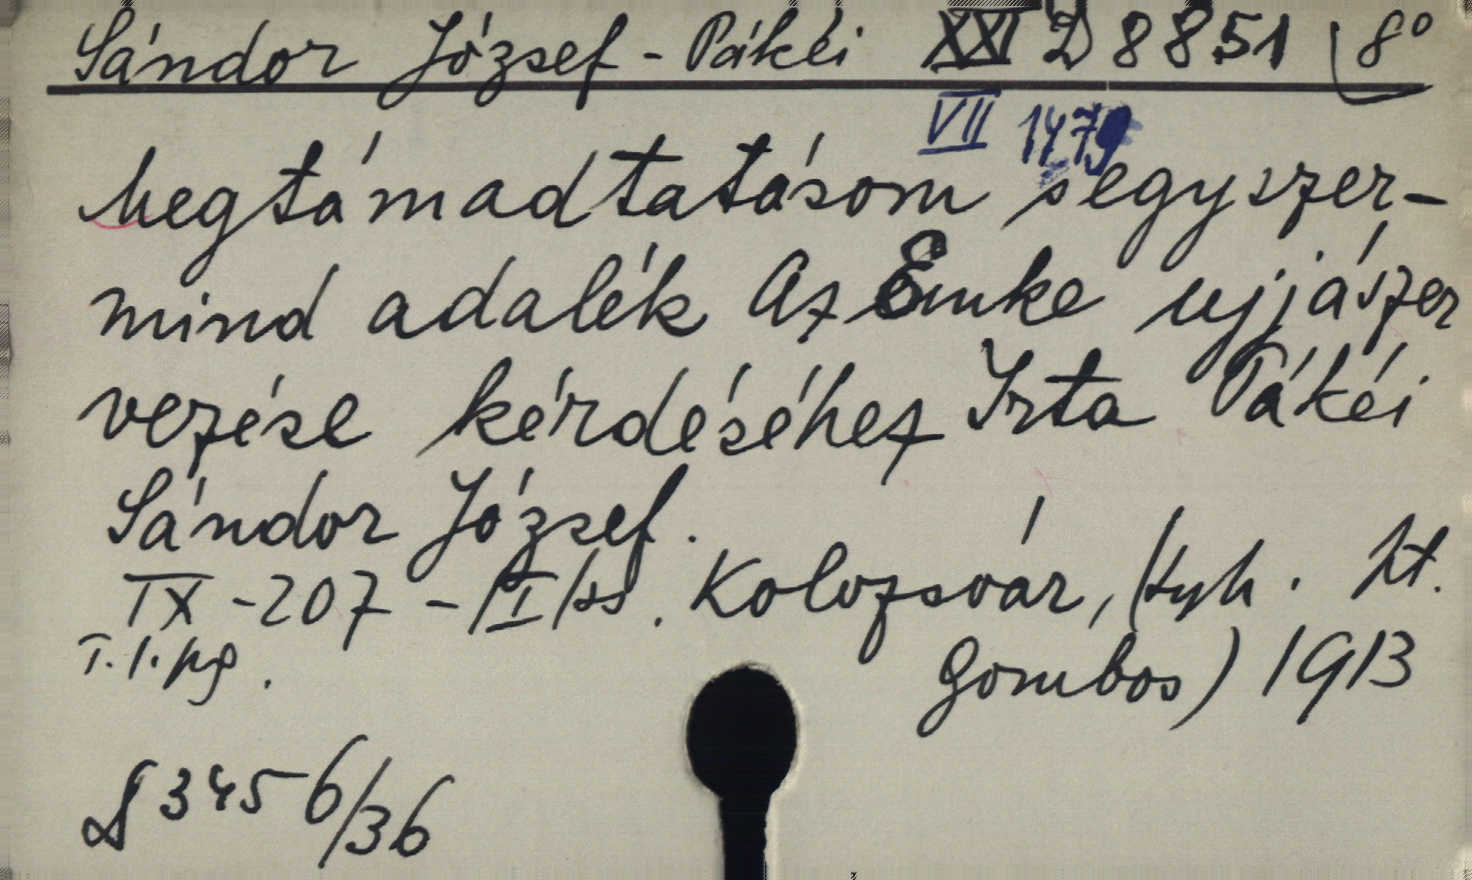 Sándor József - Pákéi XXI D 8851 (8°
VII 1479
Megtámadtatásom s egyszer-
mind adalék Az Emke ujjászer
vezése kérdéséhez Irta Pákéi
Sándor József.
IX - 207 - I ss. Kolozsvár, (Nyh. Zt.
T. l. pg. Gombos) 1913
3456/36